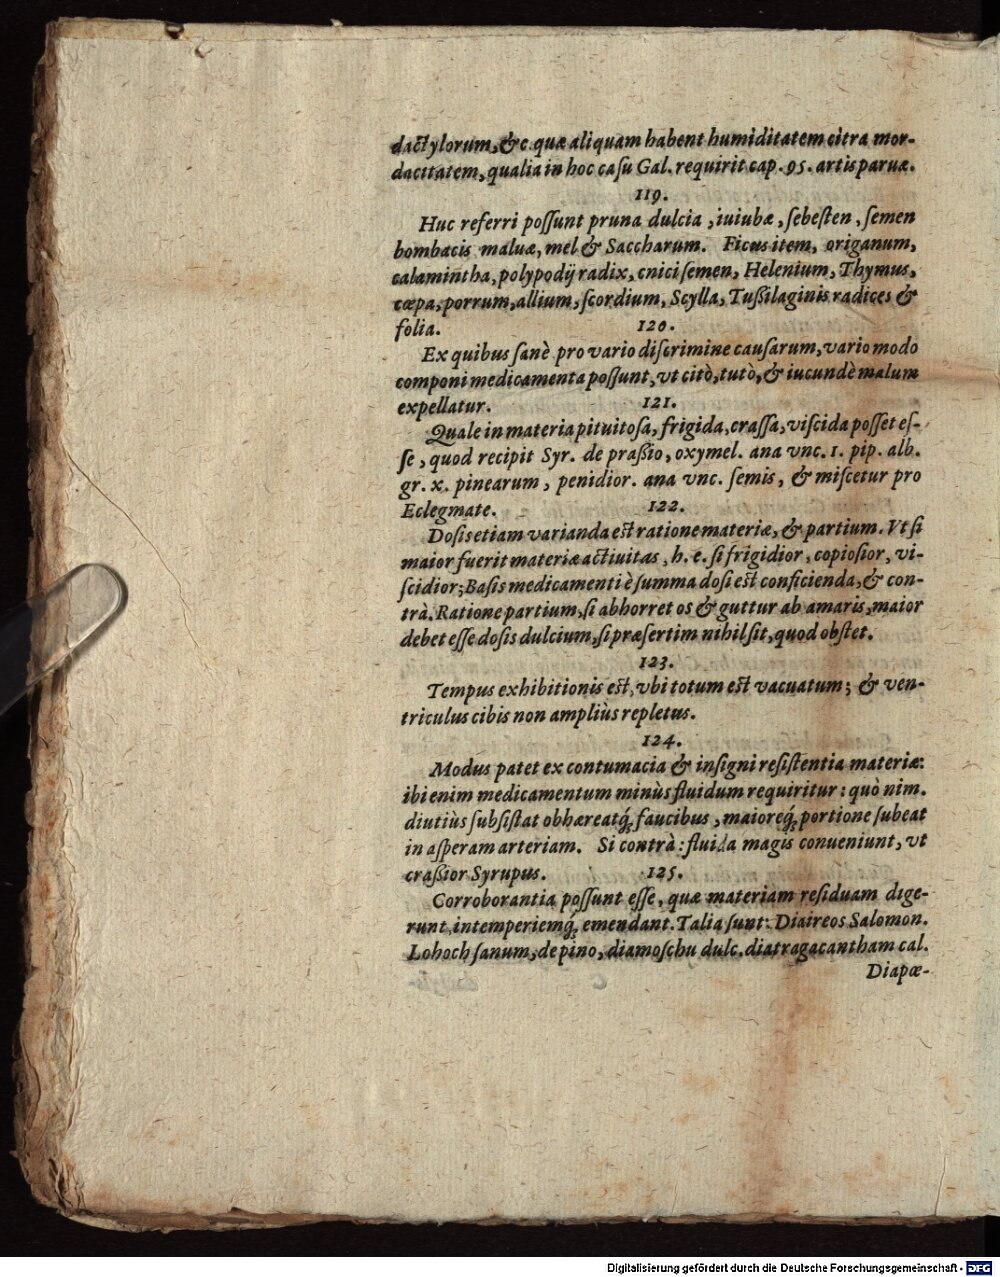 dactylorum, &c. quæ aliquam habent humiditatem citra mor-
dacitatem, qualia in hoc caſu Gal. requirit cap. 95. artis paruæ.
119.
Huc referri poſſunt pruna dulcia, iuiubæ, ſebeſten, ſemen
bombacis maluæ, mel & Saccharum. Ficus item, origanum,
calamintha, polypodij radix, cnici ſemen, Helenium, Thymus,
cœpa, porrum, allium, ſcordium, Scylla, Tußilaginis radices &
folia. 120.
Ex quibus ſanè pro vario diſcrimine cauſarum, vario modo
componi medicamenta poſſunt, vt citò, tutò, & iucundè malum
expellatur. 121.
Quale in materia pituitoſa, frigida, craſſa, viſcida poſſet eſ-
ſe, quod recipit Syr. de praßio, oxymel. ana vnc. 1. pip. alb.
gr. x. pinearum, penidior. ana vnc. ſemis, & miſcetur pro
Eclegmate. 122.
Doſis etiam varianda est ratione materiæ, & partium. Vt ſi
maior fuerit materiæ actiuitas, h. e. ſi frigidior, copioſior, vi-
ſcidior; Baſis medicamenti è ſumma doſi est conficienda, & con-
trà. Ratione partium, ſi abhorret os & guttur ab amaris, maior
debet eſſe doſis dulcium, ſi præſertim nihil ſit, quod obſtet.
123.
Tempus exhibitionis est, vbi totum est vacuatum; & ven-
triculus cibis non ampliùs repletus.
124.
Modus patet ex contumacia & inſigni reſiſtentia materiæ:
ibi enim medicamentum minùs fluidum requiritur: quò nim.
diutiùs ſubſiſtat obhæreatq́; faucibus, maioreq́; portione ſubeat
in aſperam arteriam. Si contrà: fluida magis conueniunt, vt
craßior Syrupus. 125.
Corroborantia poſſunt eſſe, quæ materiam reſiduam dige-
runt, intemperiemq́; emendant. Talia ſunt: Diaireos Salomon.
Lohoch ſanum, de pino, diamoſchu dulc. diatragacantham cal.
Diapæ-
Digitalisierung gefördert durch die Deutsche Forschungsgemeinschaft - DFG